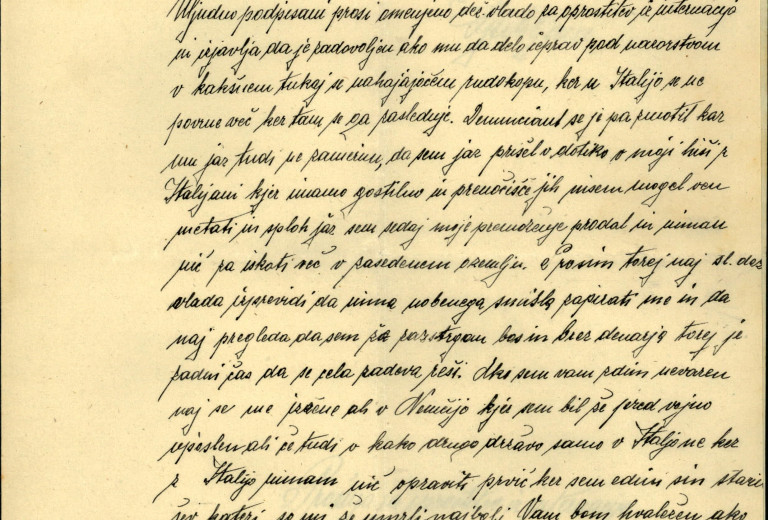 Uljudno podpisani prosi omenjeno dež. vlado za oprostitev iz internacije
in izjavlja da je zadovoljen ako mu da delo čeprav pod nadzorstvom
v kakšnem tukaj se nahajajočem rudokopu, ker v Italijo se ne
povrne več ker tam se ga zasleduje. Denunciant se je pa zmotil kar
mu jaz tudi ne zamerim, da sem jaz prišel v dotiko v moji hiši z
Italijani kjer imamo gostilno in prenočišče jih nisem mogel ven
metati in sploh jaz sem sedaj moje premoženje prodal in nimam
nič za iskati več v zasedenem ozemlju. Prosim torej naj sl. dež
vlada izprevidi da nima nobenega smisla zapirati me in da
naj pregleda da sem že razstrgan bos in brez denarja torej je
zadni čas da se cela zadeva reši. Ako sem vam zdim nevaren
naj se me izžene ali v Nemčijo kjer sem bil že pred vojno
vposlen ali če tudi v kako drugo državo samo v Italijo ne ker
z Italijo nimam nič opraviti prvič ker sem edini sin stari
šev kateri so mi že umrli najbolj Vam bom hvaležen ako